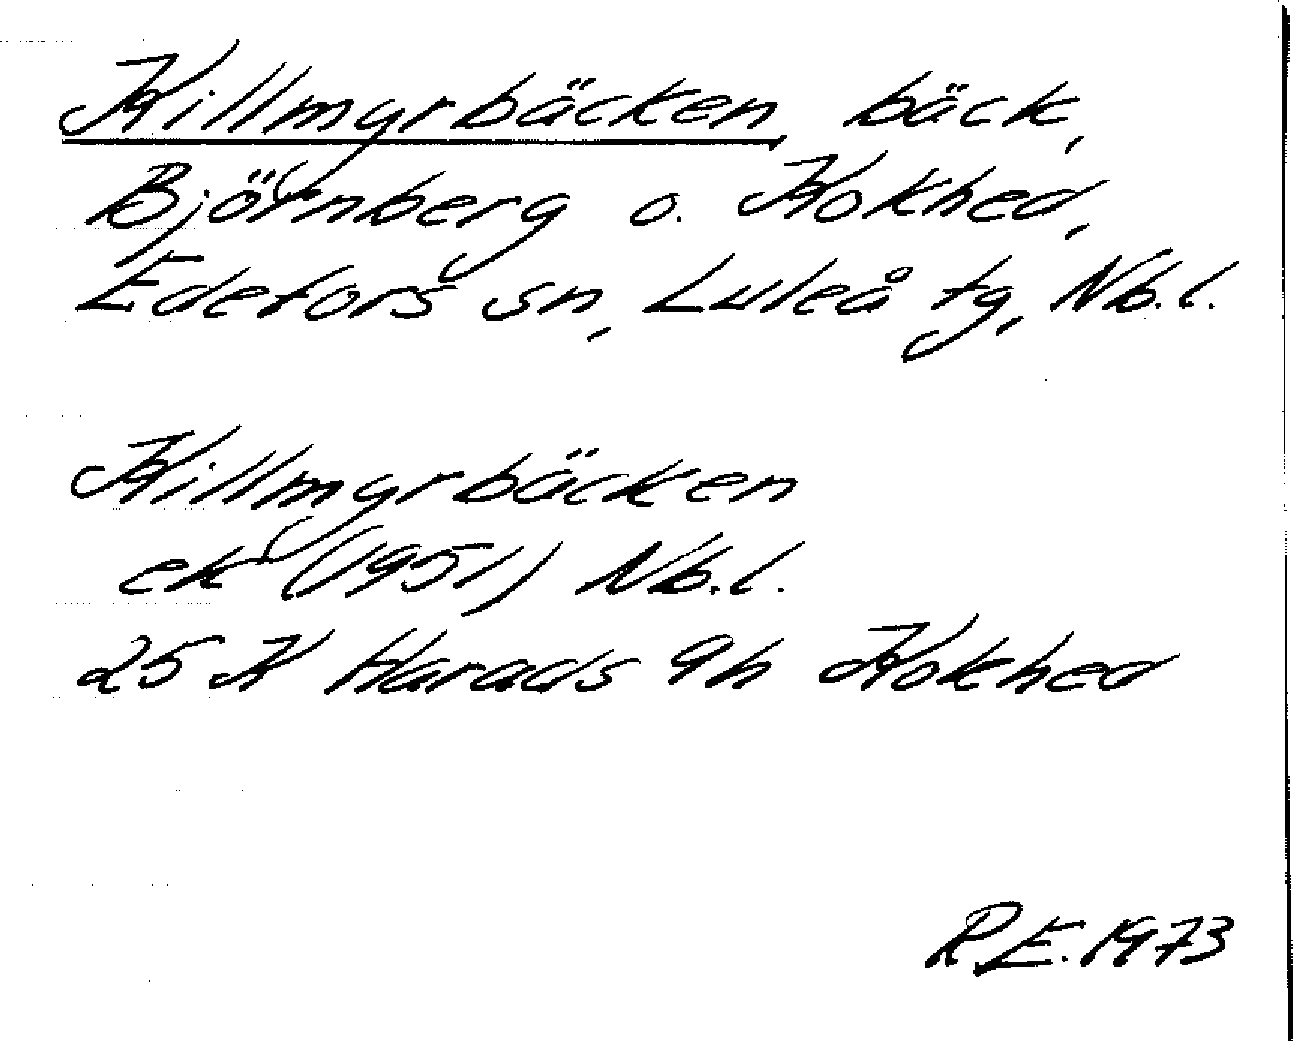 Killmyrbäcken, bäck,
Björnberg o. Kokhed,
Edefors sn, Luleå tg, Nb.l.
Killmyrbäcken
ek (1951) Nb.l.
25 K Harads 9h Kokhed
R.E. 1973